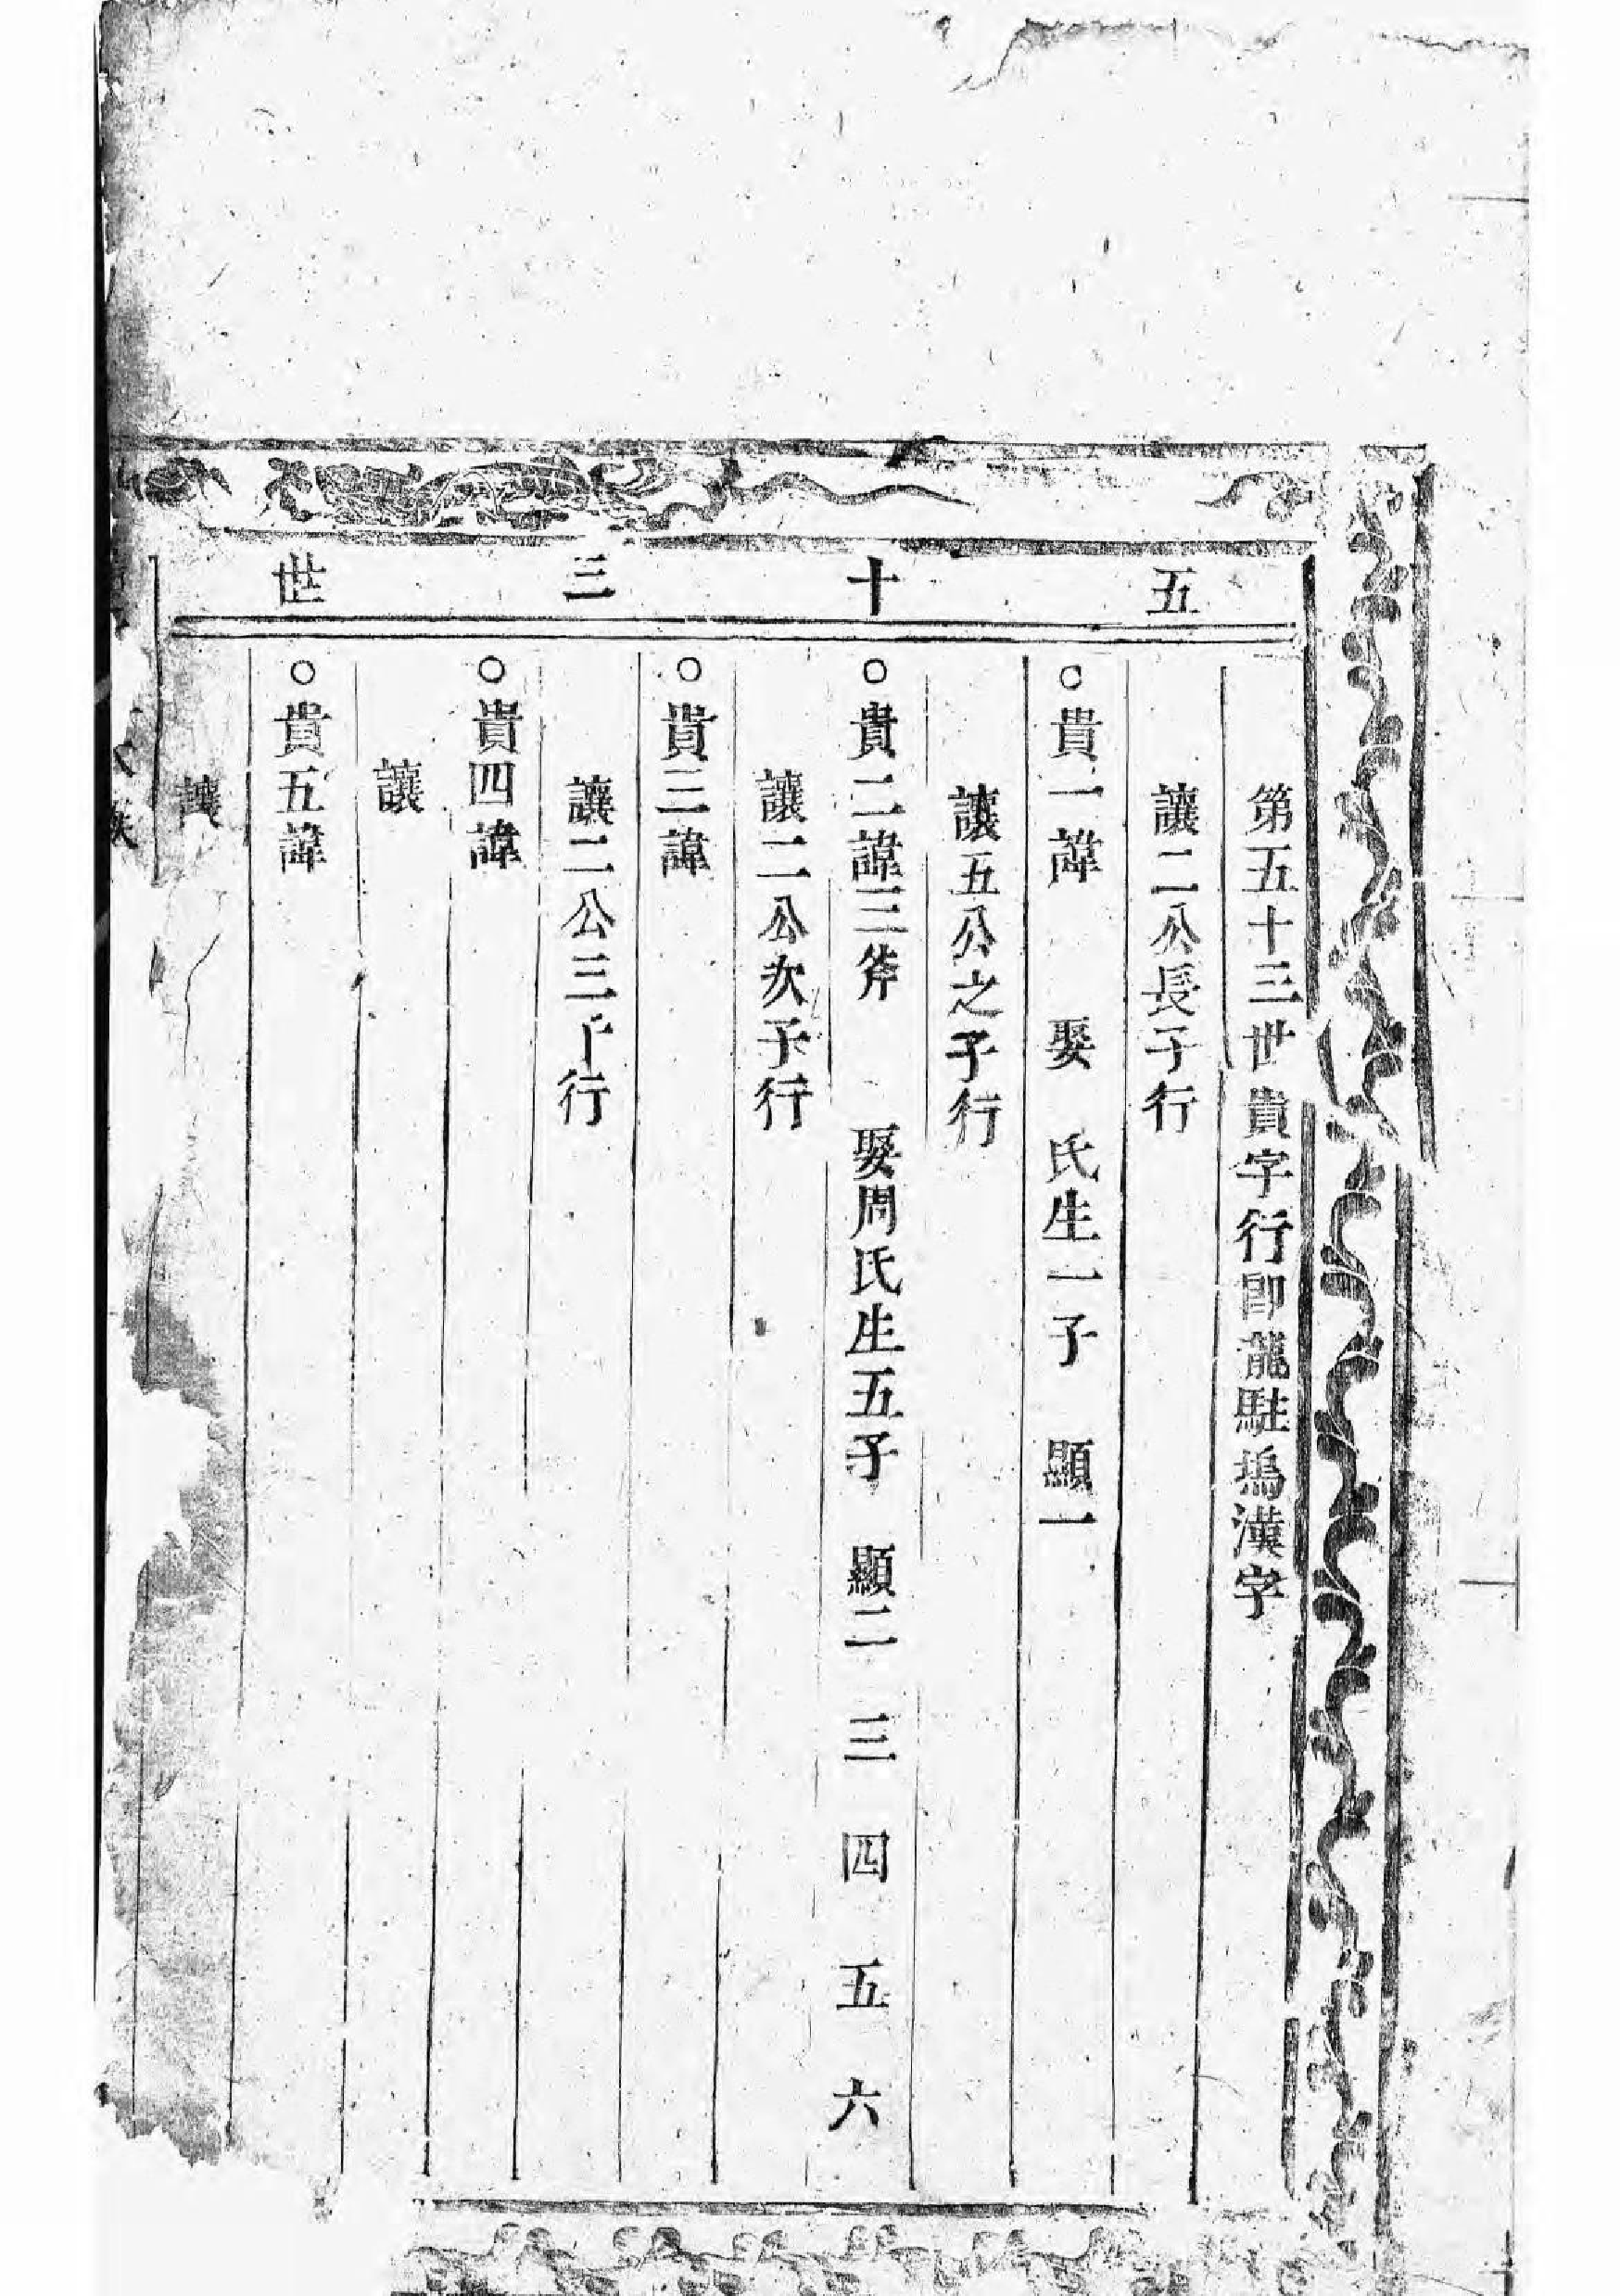 五十三世
第五十三世貴字行卽龍駐塢漢字
讓二公長子行
○貴一諱 娶 氏生一子 顯一
讓五公之子行
○貴二諱三斧 娶周氏生五子 顯二 三 四 五 六
讓二公次子行
○貴三諱
讓二公三 行
○貴四諱
讓
○貴五諱
讓